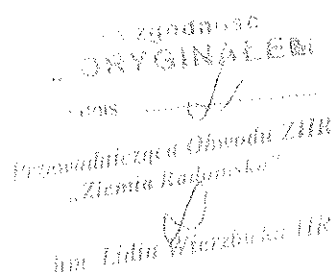 zgodność
ORYGINAŁEM
Przewodnicząca Obwodu ZHR
„Ziemia Radomska”
hm. Lidia Wierzbicka HR